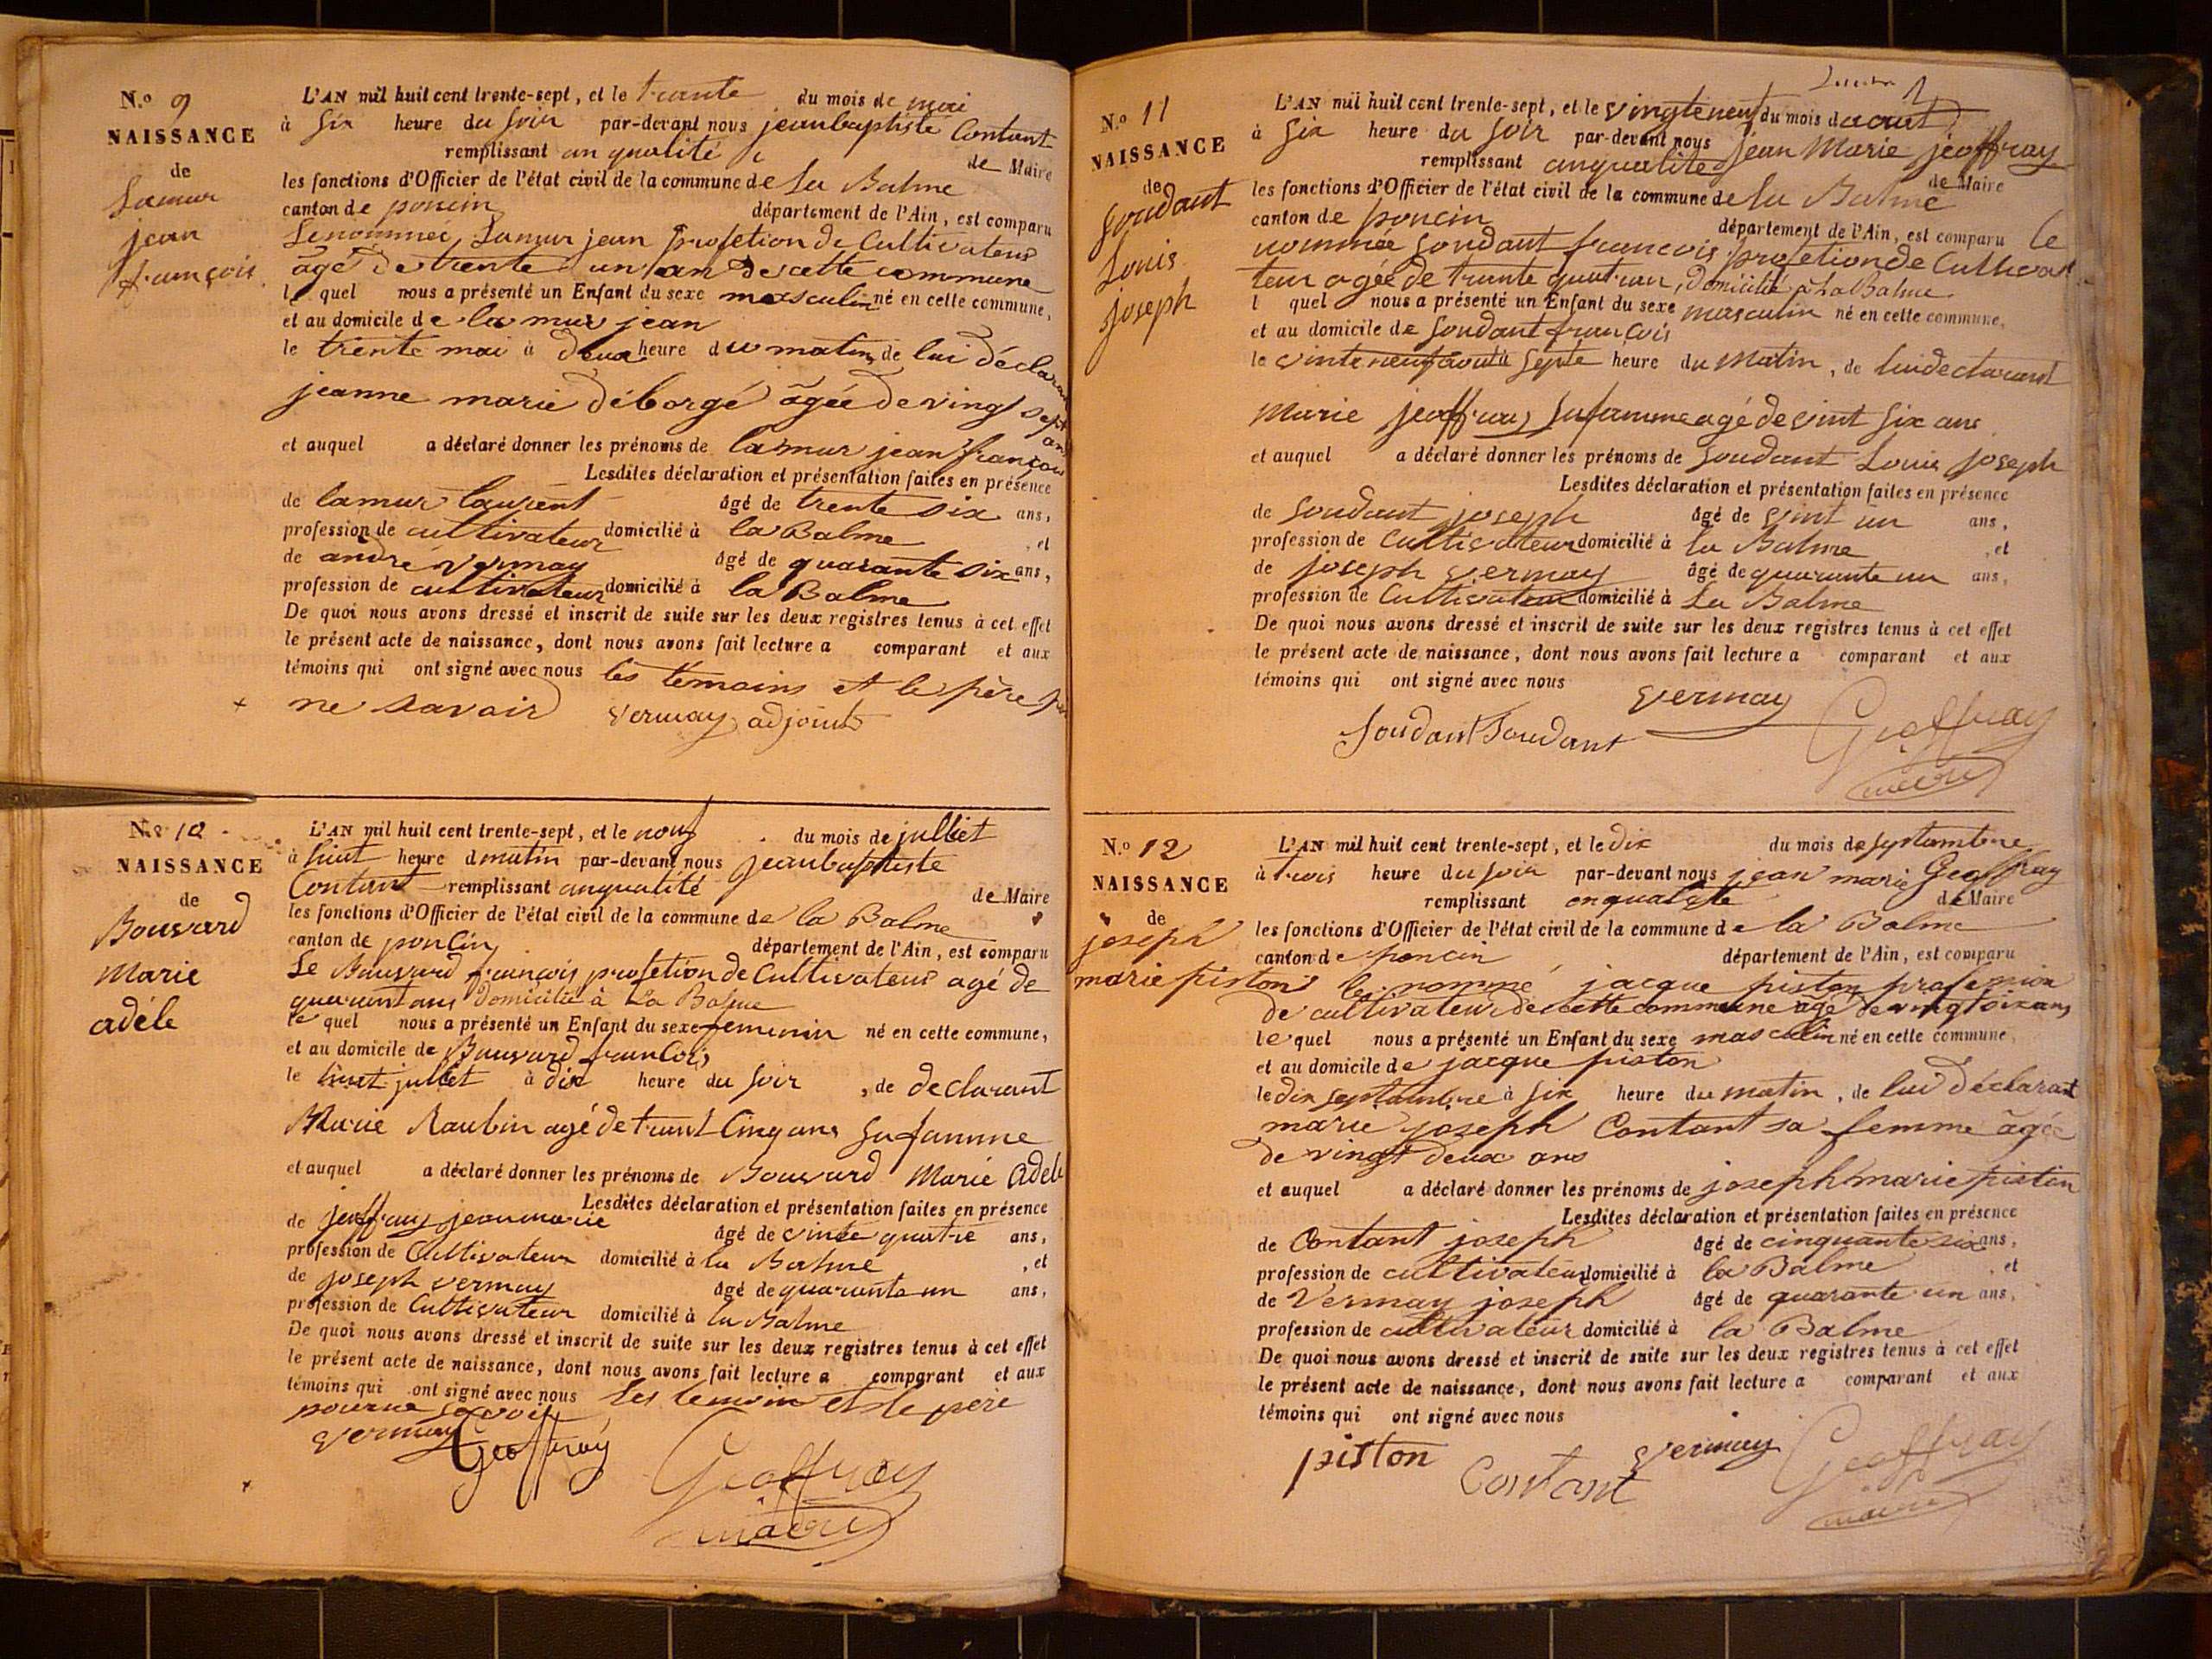 N.o 9
NAISSANCE
de
Lamur
jean
françois
L'AN mil huit cent trente-sept, et le trante du mois de mai
à Six heure du soir par-devant nous jeanbaptiste Contant
remplissant an qualité de Maire
les fonctions d'Officier de l'état civil de la commune de La Balme
canton de poncin département de l'Ain, est comparu
Lenommée Lamur jean profetion de Cultivateur
âgé de trente un an de cette commune
l quel nous a présenté un Enfant du sexe masculin né en cette commune,
et au domicile de la mur jean
le trente mai à deux heure du matin, de lui déclarant
jeanne marie déborgé âgée de vingt sept ans
et auquel a déclaré donner les prénoms de lamur jean françois
Lesdites déclaration et présentation faites en présence
de lamur laurent âgé de trente six ans,
profession de cultivateur domicilié à la Balme , et
de andré vermay âgé de quarante six ans,
profession de cultivateur domicilié à la Balme
De quoi nous avons dressé et inscrit de suite sur les deux registres tenus à cet effet
le présent acte de naissance, dont nous avons fait lecture a comparant et aux
témoins qui ont signé avec nous les témoins et le père
ne savoir vermay adjoint
N.o 10
NAISSANCE
de
Bouvard
Marie
adéle
L'AN mil huit cent trente-sept, et le nouf du mois de julliet
à huit heure d matin par-devant nous jeanbaptiste
Contant remplissant anqualité de Maire
les fonctions d'Officier de l'état civil de la commune de la Balme
canton de poncin département de l'Ain, est comparu
Le Bouvard françois profetion de Cultivateur agé de
quarant ans domicilié à La Balme
le quel nous a présenté un Enfant du sexe feminin né en cette commune,
et au domicile de Bouvard francois
le huit julliet à dix heure du soir , de declarant
Marie Raubin agé de trant Cinq ans Safamme
et auquel a déclaré donner les prénoms de Bouvard Marie Adele
Lesdites déclaration et présentation faites en présence
de jeoffray jeanmarie âgé de vinte quatre ans,
profession de Cultivateur domicilié à la Balme , et
de joseph vermay âgé de quarante un ans,
profession de Cultivateur domicilié à la Balme
De quoi nous avons dressé et inscrit de suite sur les deux registres tenus à cet effet
le présent acte de naissance, dont nous avons fait lecture a comparant et aux
témoins qui ont signé avec nous les temoin et le pere
pourne savoir
vermay Geoffray Geoffray
maire
N.o 11
NAISSANCE
de
Soudant
Louis
joseph
L'AN mil huit cent trente-sept, et le vingteneuf du mois d aout
à Six heure du Soir par-devant nous jean Marie jeoffray
remplissant anqualité de Maire
les fonctions d'Officier de l'état civil de la commune de La Balme
canton de poncin département de l'Ain, est comparu le
nommée Soudant francois profetion de Cultiva
teur agée de trante quatran, domicilié à La Balme
l quel nous a présenté un Enfant du sexe masculin né en cette commune,
et au domicile de Soudant françois
le vinteneuf aout à septe heure du Matin , de luideclarant
Marie jeoffray Safamme agé de vint Six ans
et auquel a déclaré donner les prénoms de Soudant Louis joseph
Lesdites déclaration et présentation faites en présence
de Soudant joseph âgé de vint un ans,
profession de Cultivateur domicilié à la Balme , et
de joseph vermay âgé de quarante un ans,
profession de Cultivateur domicilié à La Balme
De quoi nous avons dressé et inscrit de suite sur les deux registres tenus à cet effet
le présent acte de naissance, dont nous avons fait lecture a comparant et aux
témoins qui ont signé avec nous
vermay
Soudant Soudant Geoffray
maire
N.o 12
NAISSANCE
de
joseph
marie piston
L'AN mil huit cent trente-sept, et le dix du mois de septambre
à trois heure du soir par-devant nous jean marie Geoffray
remplissant enqualité de Maire
les fonctions d'Officier de l'état civil de la commune de la Balme
canton de poncin département de l'Ain, est comparu
le nommé jacque piston profession
de cultivateur de cette commune agé de vingt six ans
le quel nous a présenté un Enfant du sexe masculin né en cette commune,
et au domicile de jacque piston
le dix septambre à six heure du matin , de lui déclarant
marie joseph Contant sa femme âgée
de vingt deux ans
et auquel a déclaré donner les prénoms de joseph marie piston
Lesdites déclaration et présentation faites en présence
de Contant joseph âgé de cinquante six ans,
profession de cultivateur domicilié à la Balme , et
de Vermay joseph âgé de quarante un ans,
profession de cultivateur domicilié à la Balme
De quoi nous avons dressé et inscrit de suite sur les deux registres tenus à cet effet
le présent acte de naissance, dont nous avons fait lecture a comparant et aux
témoins qui ont signé avec nous
piston Contant vermay Geoffray
maire